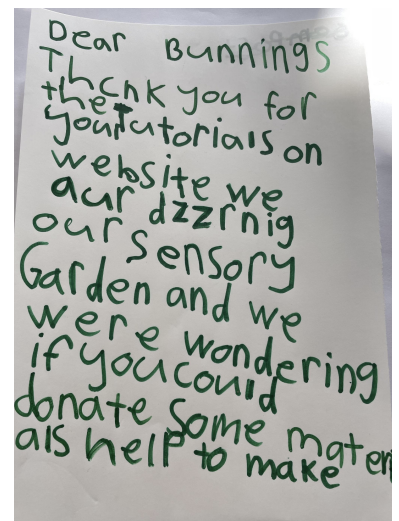 Dear Bunnings
Thank you for
the
your Tutorials on
website we
aur dzzrnig
our sensory
Garden and we
were wondering
if you could
donate some mater
als help to make